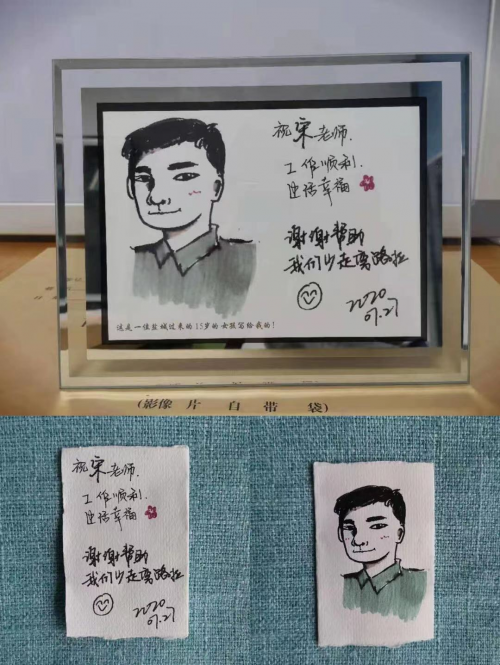 祝宋老师.
工作顺利.
生活幸福
谢谢帮助
我们少走弯路拉
2020
07.27
这是一位盐城过来的15岁的女孩写给我的!
(影像片自带袋)
祝宋老师.
工作顺利.
生活幸福
谢谢帮助
我们少走弯路拉
2020
07.27